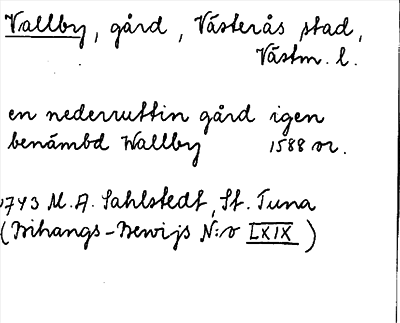 Vallby, gård, Västerås stad,
Västm. l.
en nederruttin gård igen
benämbd Wallby 1588 or.
1743 M. A. Sahlstedt, St. Tuna
(Bihangs-Bewijs N:o LXIX)